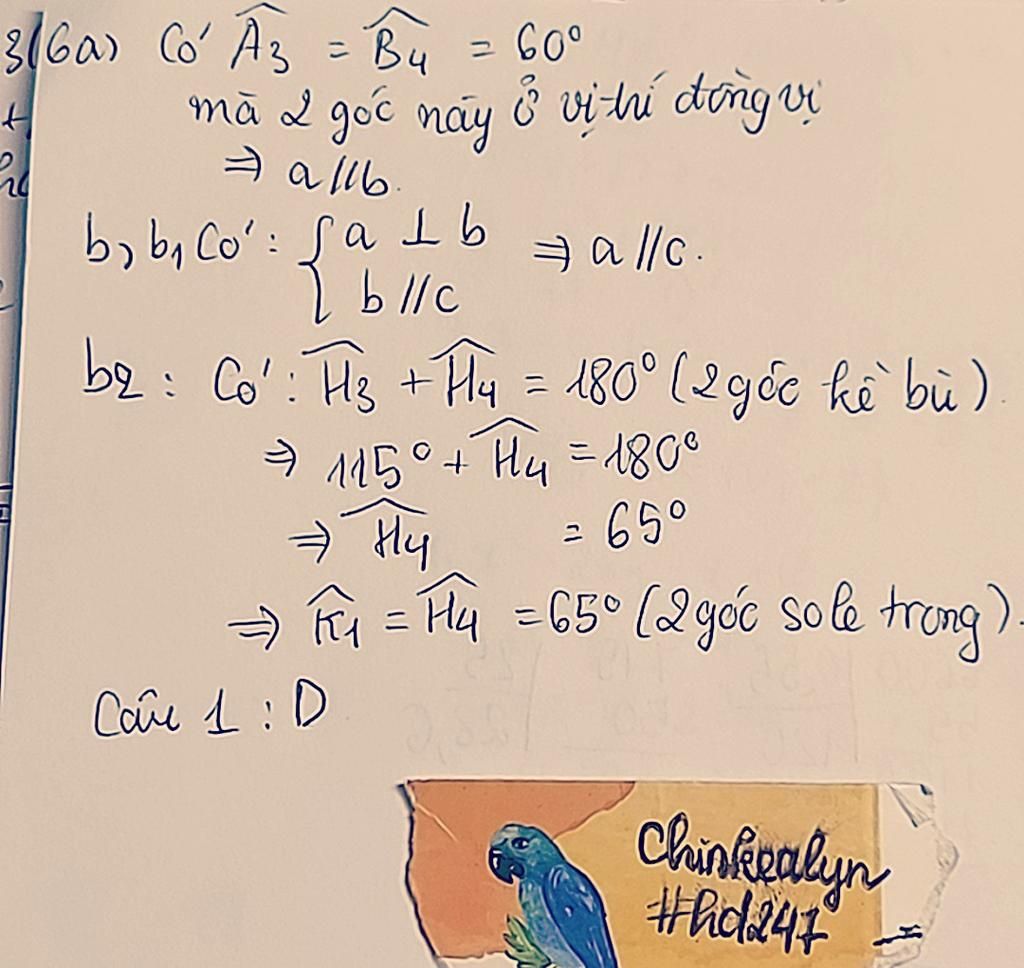 3(6a) Có Â3 = B̂4 = 60°
mà 2 góc này ở vị trí đồng vị
⇒ a//b.
b, b1 Có: { a ⊥ b ⇒ a//c.
b//c
b2: Có: Ĥ3 + Ĥ4 = 180° (2 góc kề bù).
⇒ 115° + Ĥ4 = 180°
⇒ Ĥ4 = 65°
⇒ K̂1 = Ĥ4 = 65° (2 góc so le trong).
Câu 1: D
Chinkealyn
#hd247